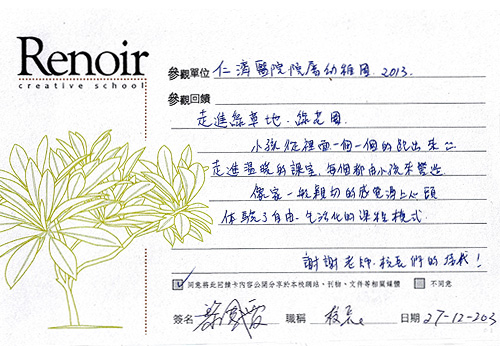 Renoir
creative school
參觀單位 仁濟醫院院屬幼稚園 2013
參觀回饋
走進綠草地、綠花園
小孩從裡面一個一個的跑出來
走進溫暖的課室,每個都由小孩來營造
像家一般親切的感覺湧上心頭
体驗了自由、生活化的課程模式
謝謝老師、校長們的接待!
同意將此回饋卡內容公開分享於本校網站、刊物、文件等相關媒體 不同意
簽名 職稱 校長 日期 27-12-203